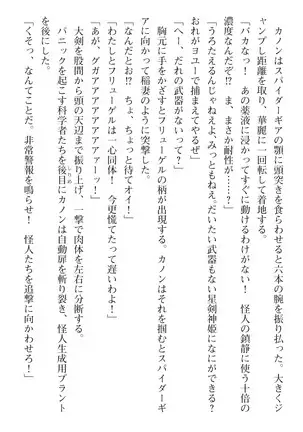 カノンはスパイダーギアの顎に頭突きを食らわせると六本の腕を振り払った。大きくジ
ャンプし距離を取り、華麗に一回転して着地する。
「バカな！　あの薬液に浸かってすぐに動けるわけがない！　怪人の鎮静に使う十倍の
濃度なんだぞ!?　ま、まさか耐性が……」
「うろたえるんじゃねえよ、みっともねえ。だいたい武器もない星剣神姫になにができる。
おれがヨユーで捕まえてやるぜ」
「へー、だれの武器がないって？」
　胸元に手をかざすとフリューゲルの柄が出現する。カノンはそれを掴むとスパイダーギ
アに向かって稲妻のように突撃した。
「なんだとお!?　ちょ、ちょっと待てオイ！」
「わたしとフリューゲルは一心同体！　今更慌てたって遅いわよ！」
「あが、グガアアアアアアアァーッ！」
　大剣を股間から頭の天辺まで振り上げ、一撃で肉体を左右に分断する。
　パニックを起こす科学者たちを後目にカノンは自動扉を斬り裂き、怪人生成用プラント
を後にした。
「くそっ、なんてことだ。非常警報を鳴らせ！　怪人たちを追撃に向かわせろ！」